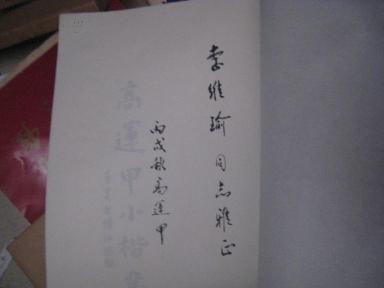 李维瑜同志雅正
丙戌秋高运甲
高運甲小楷